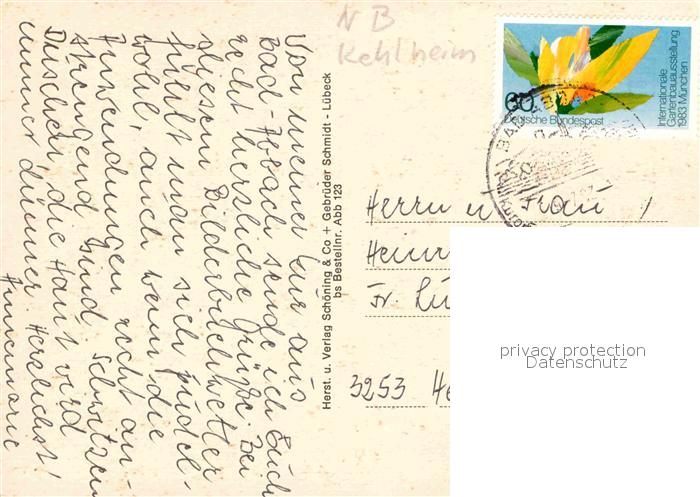 Von meiner Kur aus
Bad-Abbach sende ich Euch
recht herzliche Grüße. Bei
diesem Bilderbuchwetter
fühlt man sich pudel-
wohl, auch wenn die
Anwendungen recht an-
strengend sind. Schwitzen
Duschen, die Haut wird
immer dünner. Herzlichst!
Annemarie
Herst. u. Verlag Schöning & Co + Gebrüder Schmidt - Lübeck
bs Bestellnr. Abb 123
N B
Kehlheim
60
Deutsche Bundespost
Internationale
Gartenbauausstellung
1983 München
BAD
Herrn u Frau
Heinr
Fr.
3253 He
privacy protection
Datenschutz